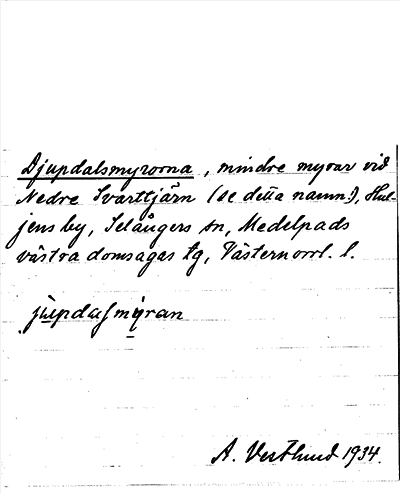 Djupdalsmyrorna, mindre myrar vid
Nedre Svarttjärn (se detta namn!), Hul-
jens by, Selångers sn, Medelpads
västra domsagas tg, Västernorrl. l.
jupdalsmyran
A. Vestlund 1934.